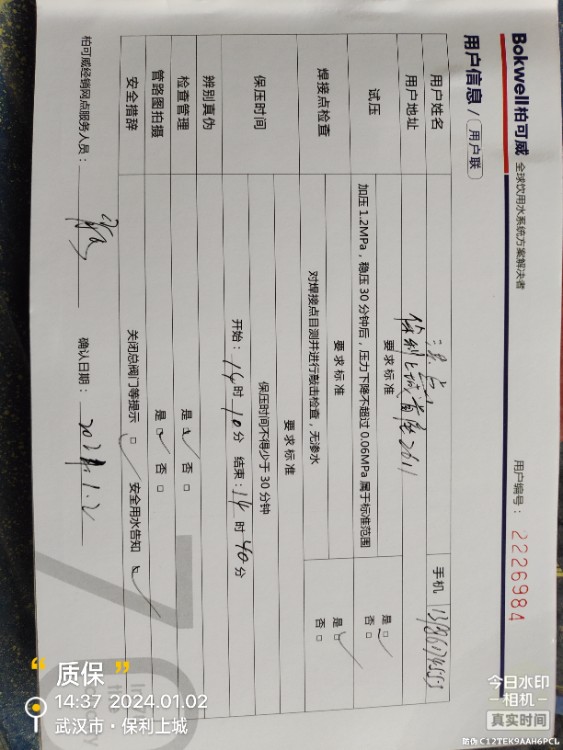 Bokwell柏可威 全球饮用水系统方案解决者
用户信息 / 用户联
用户编号： 2226984
用户姓名 手机
用户地址 保利上城 2611
试压 要求标准
加压 1.2MPa，稳压 30 分钟后，压力下降不超过 0.06MPa 属于标准范围 是 □ 否 □
焊接点检查 要求标准
对焊接点目测并进行敲击检查，无渗水 是 □ 否 □
保压时间 要求标准
保压时间不得少于 30 分钟
开始：14 时 10 分 结束：14 时 40 分
辨别真伪
检查管理 是 □ 否 □
管路图拍摄 是 □ 否 □
安全措辞 关闭总阀门等提示 □ 安全用水告知 □
柏可威经销网点服务人员： 确认日期： 2024.1.2
“质保”
14:37 2024.01.02
武汉市·保利上城
今日水印
相机
真实时间
防伪 C12TEK9AAH6PCL